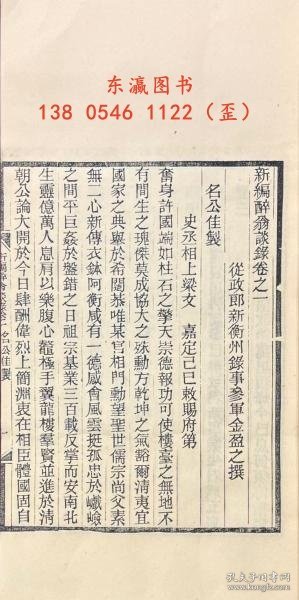 东瀛图书
138 0546 1122（歪）
新編醉翁談錄卷之一
從政郎新衡州錄事參軍金盈之撰
名公佳製
史丞相上梁文 嘉定己巳敕賜府第
奮身許國端如柱石之擎天崇德報功可使樓臺之無地不
有間生之瑰傑莫成協大之殊勳方乾坤之氣豁爾淸夷宜
國家之典舉於希闊恭唯某官相門勳望聖世儒宗尚父素
無二心新傳衣鉢阿衡咸有一德感會風雲挺孤忠於巇嶮
之間平巨姦於盤錯之日祖宗基業三百載反掌而安南北
生靈億萬人息肩以樂腹心鼇極手翼龍樓羣賢並進於淸
朝公論大開於今日肆酬偉烈上簡淵衷在相臣體國固自
名公佳製
一
孔夫子旧书网